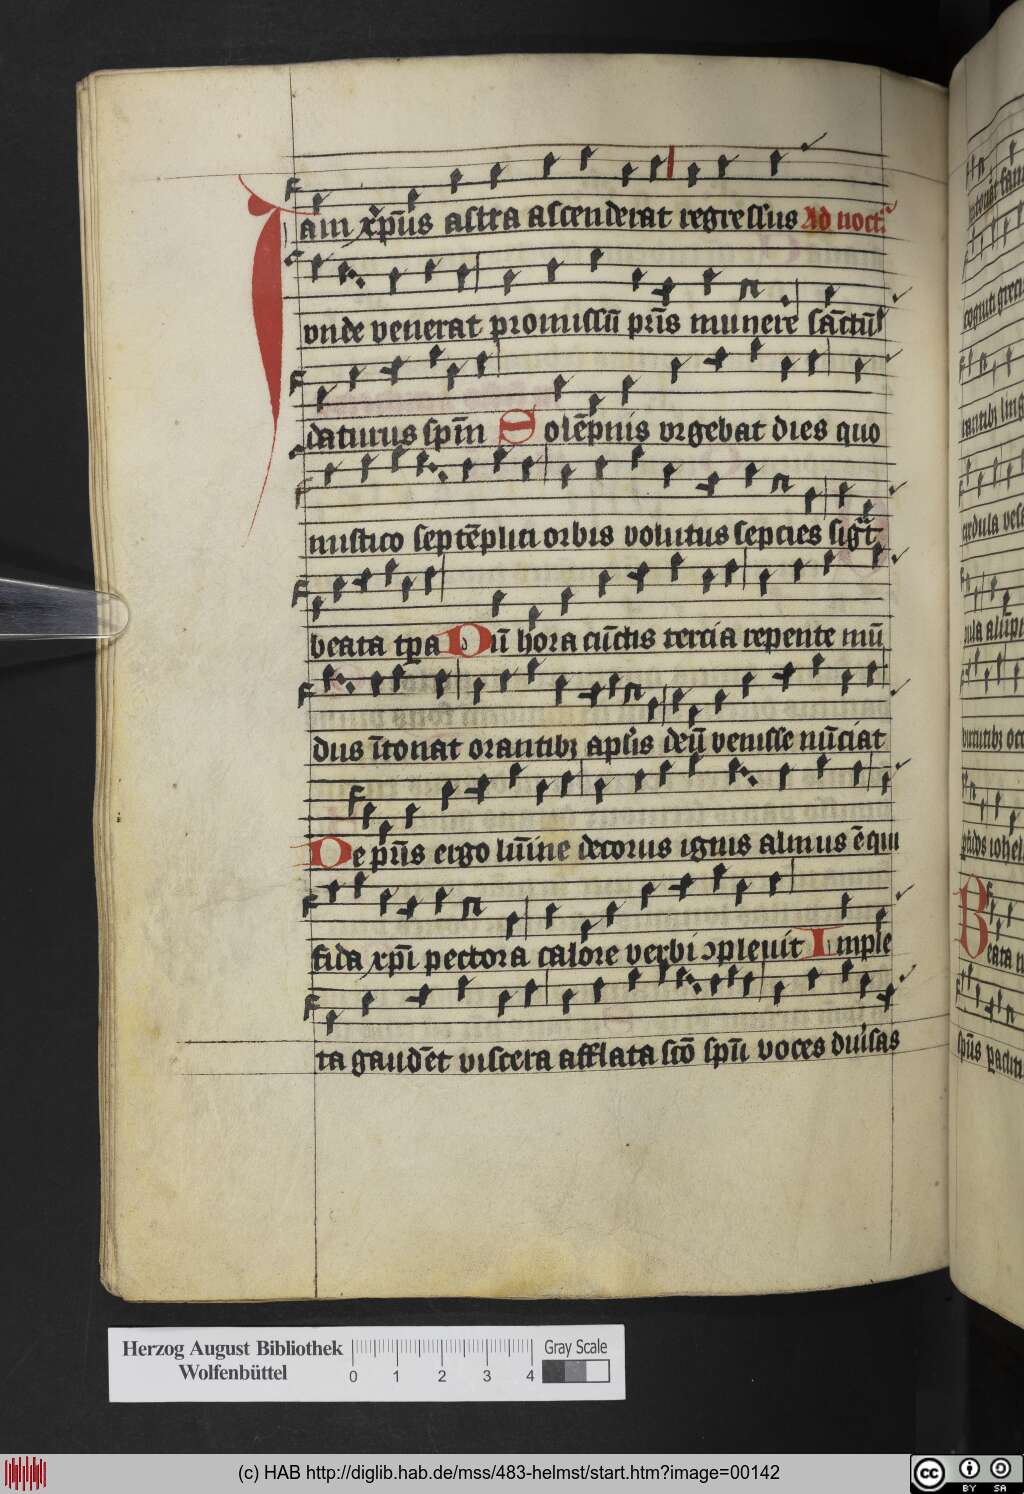 Iam xp̄us astra ascenderat regressus Ad noct̄
vnde venerat promissū pr̄is munere sāctū
daturus spm̄ Solēpnis vrgebat dies quo
mistico septēplici orbis volutus sepcies siḡt
beata tp̄a Dū hora cūctis tercia repente mū
dus ītonat orantibꝫ apl̄is deū venisse nūciat
De pr̄is ergo lūīne decorus ignis almus ē qui
fida xp̄i pectora calore verbi ꝯpleuit Imple
ta gaudēt viscera afflata sc̄o sp̄u voces duīsas
Herzog August Bibliothek
Wolfenbüttel
0 1 2 3 4
Gray Scale
(c) HAB http://diglib.hab.de/mss/483-helmst/start.htm?image=00142
cc BY SA